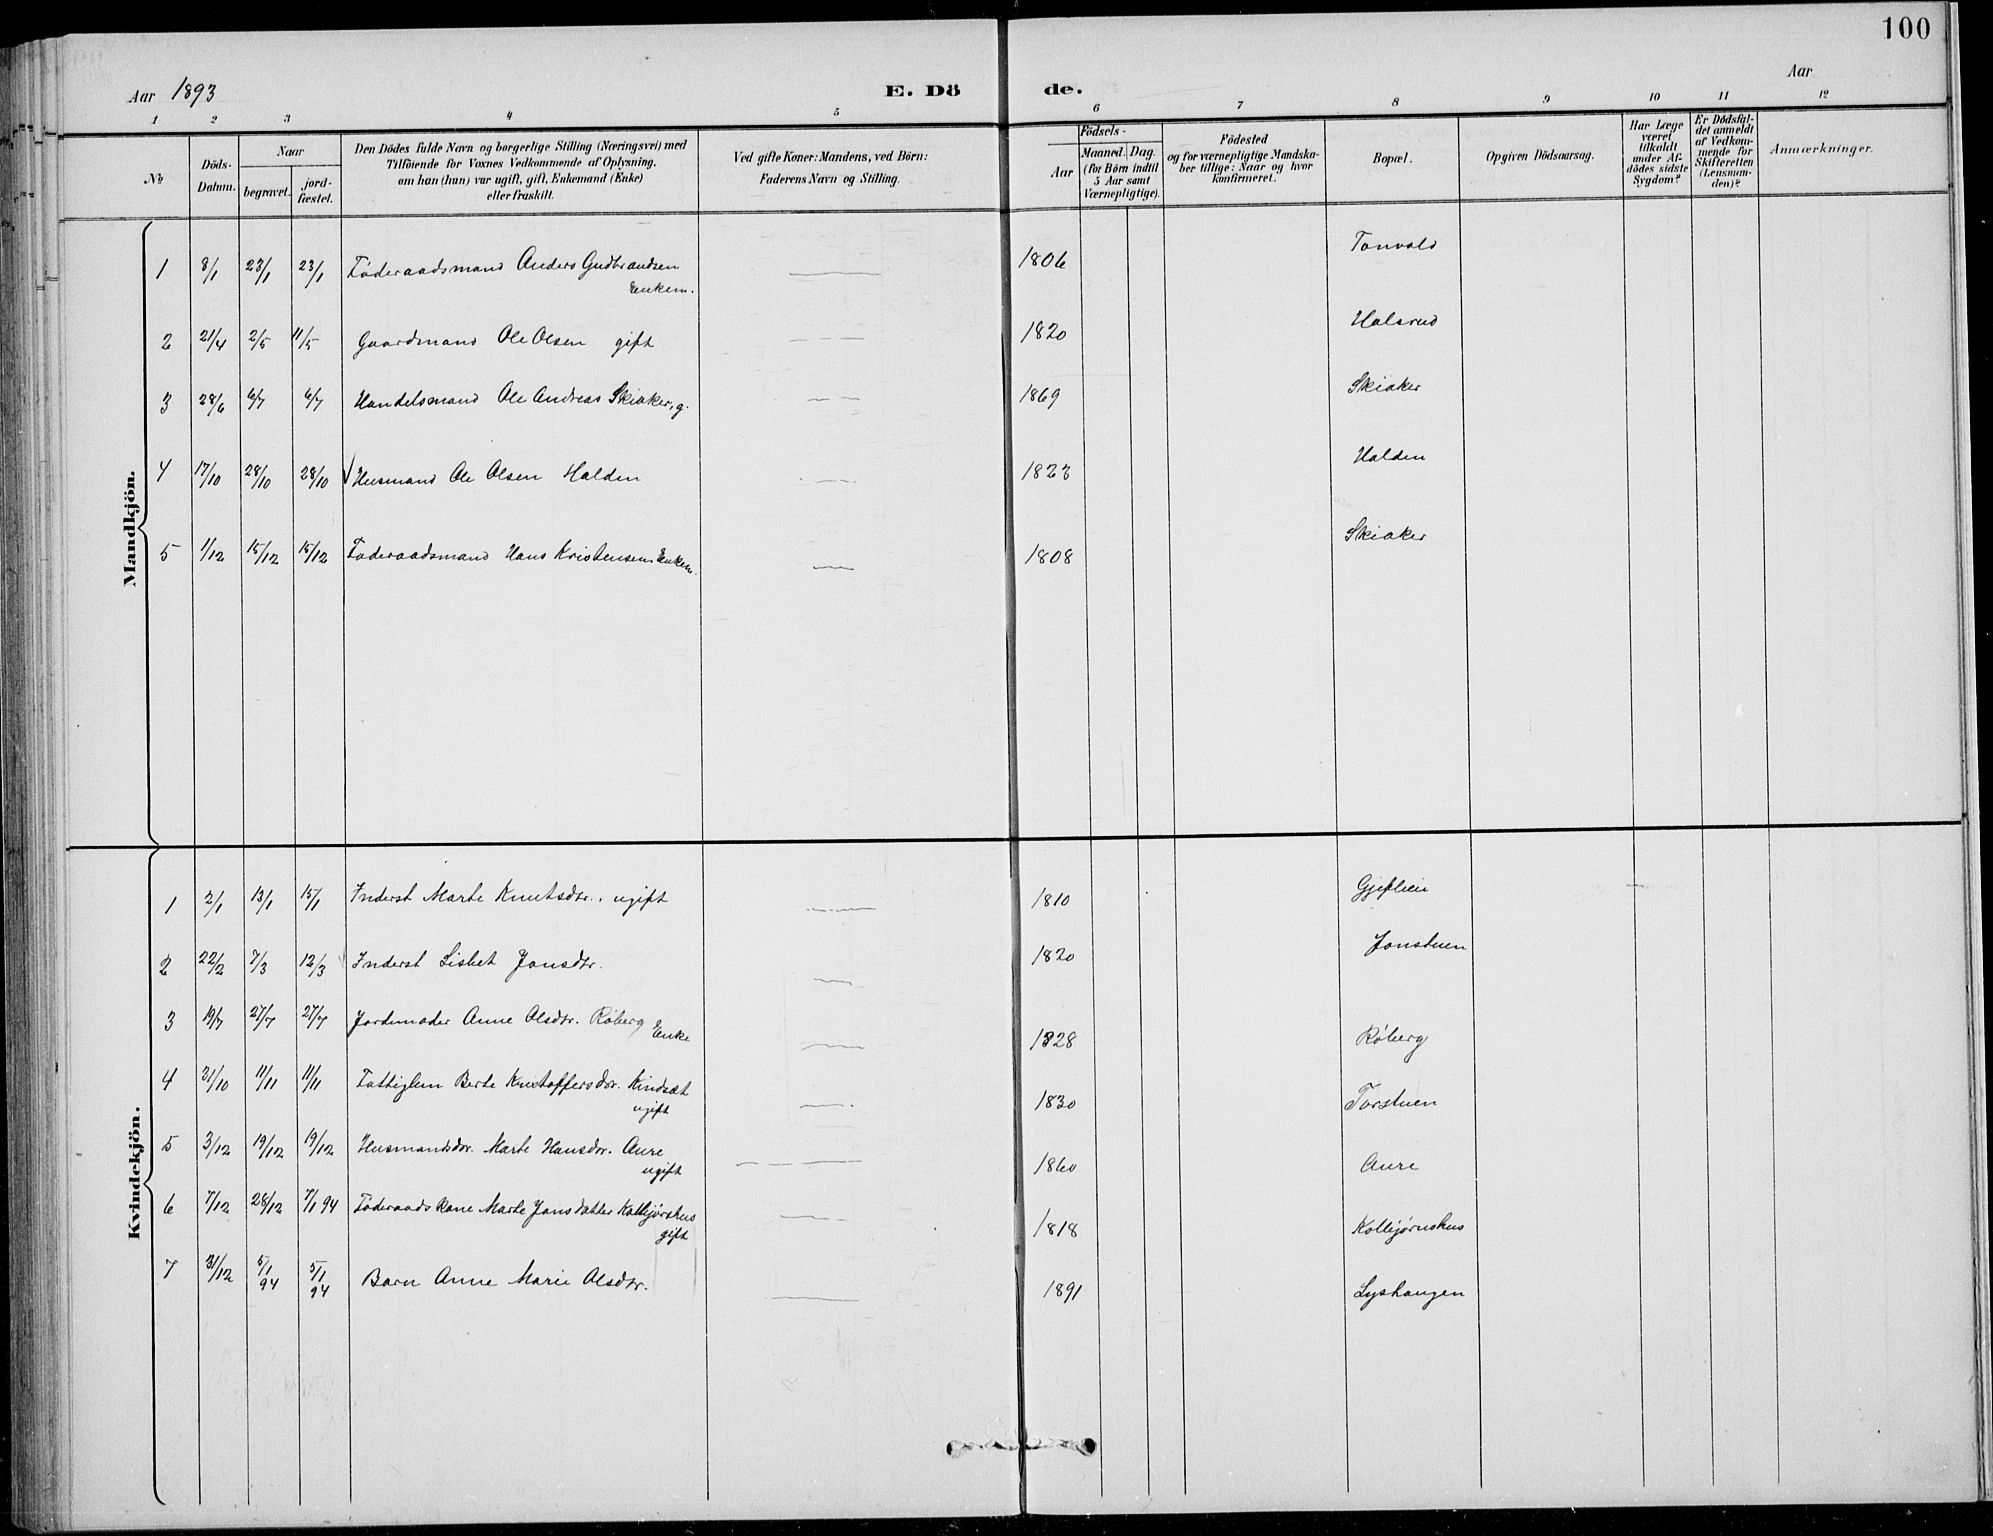 100
Aar 1893
E. Dö
de.
Aar
1 2 3 4 5 6 7 8 9 10 11 12
No
Döds-Datum.
Naar
begravet.
jord-fæstet.
Den Dödes fulde Navn og borgerlige Stilling (Næringsvei) med
Tilföiende for Voxnes Vedkommende af Oplysning,
om han (hun) var ugift, gift, Enkemand (Enke)
eller fraskilt.
Ved gifte Koner: Mandens, ved Börn:
Faderens Navn og Stilling.
Födsels-
Aar
Maaned. Dag.
(for Börn indtil
5 Aar samt
Værnepligtige).
Födested
og for værnepligtige Mandska-
ber tillige: Naar og hvor
konfirmeret.
Bopæl.
Opgiven Dödsaarsag.
Har Læge
været
tilkaldt
under Af-
dödes sidste
Sygdom?
Er Dödsfal-
det anmeldt
af Vedkom-
mende for
Skifteretten
(Lensman-
den)?
Anmærkninger.
Mandkjön.
1 8/1 23/1 23/1 Föderaadsmand Anders Gudbrandsen 1806 Tonvold
Enkem.
2 21/4 2/5 11/5 Gaardmand Ole Olsen gift 1820 Halsrud
3 28/6 6/7 6/7 Handelsmand Ole Andreas Skiaker, g. 1869 Skiaker
4 17/10 28/10 28/10 Husmand Ole Olsen Halden 1823 Halden
5 1/12 15/12 15/12 Föderaadsmand Hans Kristensen Enkem. 1808 Skiaker
Kvindekjön.
1 2/1 13/1 15/1 Inderst Marte Knutsdtr., ugift 1810 Gjeflien
2 22/2 7/3 12/3 Inderst Lisbet Jonsdtr. 1820 Jonstuen
3 19/7 27/7 27/7 Jordemoder Anne Olsdtr. Röberg 1828 Röberg
Enke
4 31/10 11/11 11/11 Fattiglem Berte Kristoffersdtr. Kindsæt 1830 Torstuen
ugift
5 3/12 19/12 19/12 Husmandsdtr. Marte Hansdtr. Aure 1860 Aure
ugift
6 7/12 28/12 7/1 94 Föderaadskone Marte Jonsdatter Kolbjørnshus 1818 Kolbjørnshus
gift
7 31/12 5/1 94 5/1 94 Barn Anne Marie Olsdtr. 1891 Lyshaugen